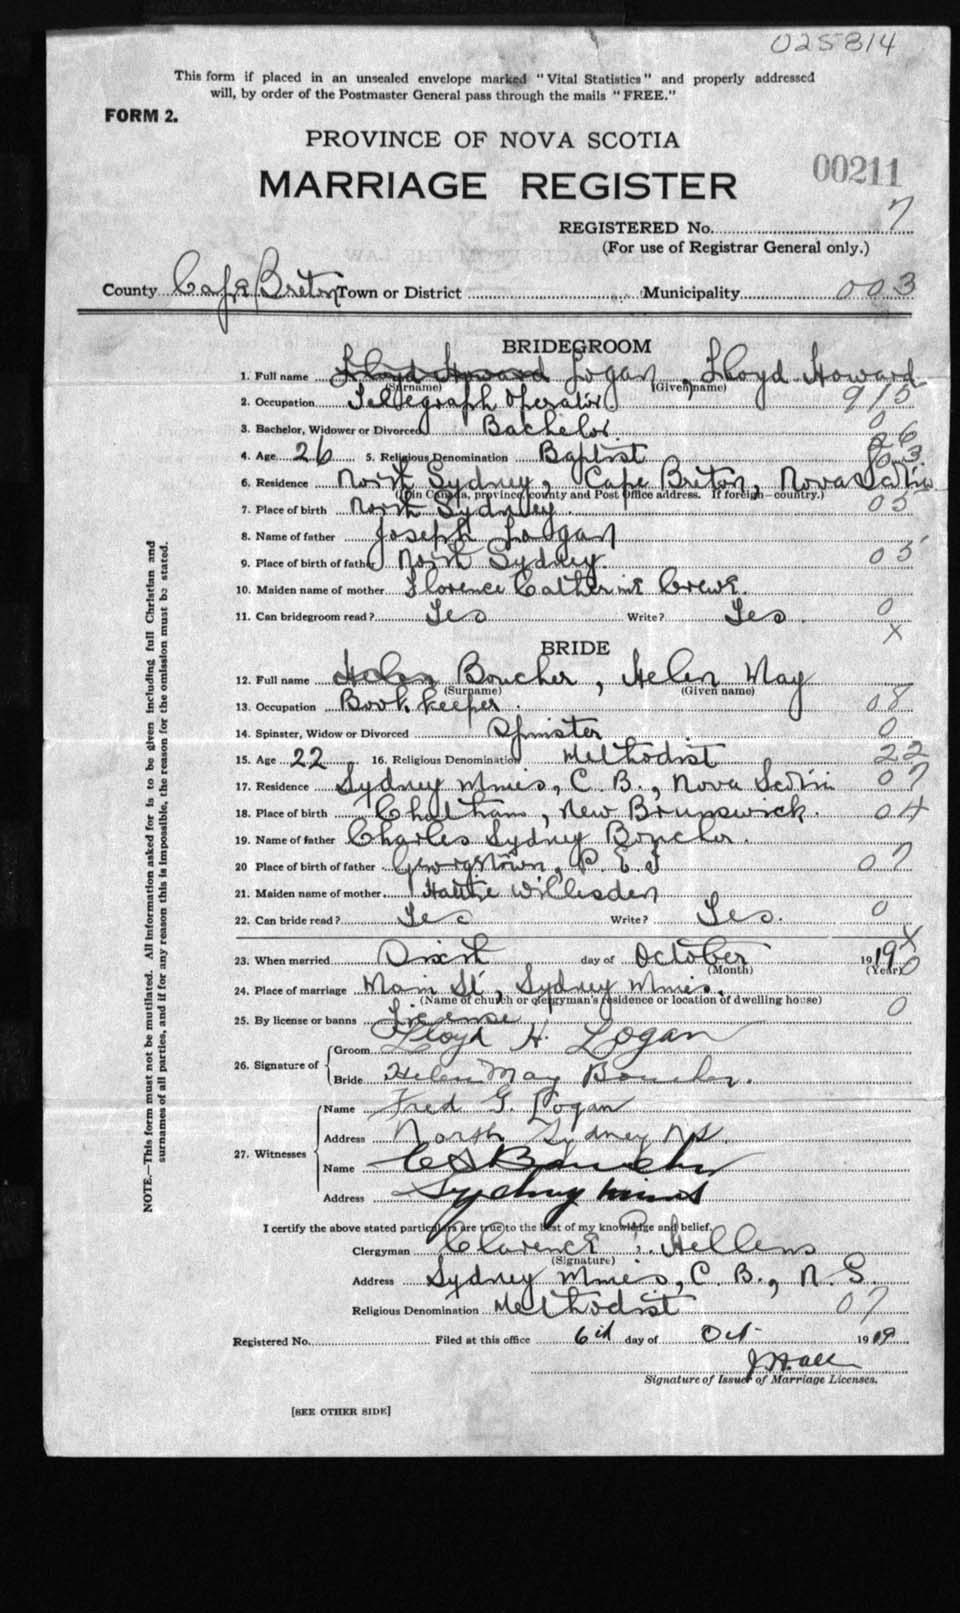 025814
This form if placed in an unsealed envelope marked "Vital Statistics" and properly addressed
will, by order of the Postmaster General pass through the mails "FREE."
FORM 2.
PROVINCE OF NOVA SCOTIA
00211
MARRIAGE REGISTER
REGISTERED No. 7
(For use of Registrar General only.)
County Cape Breton Town or District Municipality 003
BRIDEGROOM
1. Full name Lloyd Howard Logan, Lloyd Howard
(Surname) (Given name)
2. Occupation Telegraph Operator 915
3. Bachelor, Widower or Divorced Bachelor 0
4. Age 26 5. Religious Denomination Baptist 26
03
6. Residence North Sydney, Cape Breton, Nova Scotia
(If in Canada, province, county and Post Office address. If foreign—country.)
7. Place of birth North Sydney 05
8. Name of father Joseph Logan
9. Place of birth of father North Sydney. 05
10. Maiden name of mother Florence Catherine Crewe.
11. Can bridegroom read? Yes Write? Yes. 0
X
BRIDE
12. Full name Helen Boucher, Helen May
(Surname) (Given name)
13. Occupation Book keeper. 08
14. Spinster, Widow or Divorced Spinster 0
15. Age 22 16. Religious Denomination Methodist 22
17. Residence Sydney Mines, C. B., Nova Scotia 07
18. Place of birth Chatham, New Brunswick. 04
19. Name of father Charles Sydney Boucher.
20 Place of birth of father Georgetown, P. E. I 07
21. Maiden name of mother Hattie Willisden
22. Can bride read? Yes Write? Yes. 0
X
23. When married Sixth day of October 1919
(Month) (Year) 0
24. Place of marriage Main St, Sydney Mines.
(Name of church or clergyman's residence or location of dwelling house)
25. By license or banns License 0
26. Signature of Groom Lloyd H. Logan
Bride Helen May Boucher.
27. Witnesses Name Fred G. Logan
Address North Sydney NS.
Name C S Boucher
Address Sydney Mines
I certify the above stated particulars are true to the best of my knowledge and belief.
Clergyman Clarence Hellens
(Signature)
Address Sydney Mines, C. B., N. S.
Religious Denomination Methodist 07
Registered No. Filed at this office 6th day of Oct 1919
J Hall
Signature of Issuer of Marriage Licenses.
[SEE OTHER SIDE]
NOTE.—This form must not be mutilated. All information asked for is to be given including full Christian and
surnames of all parties, and if for any reason this is impossible, the reason for the omission must be stated.